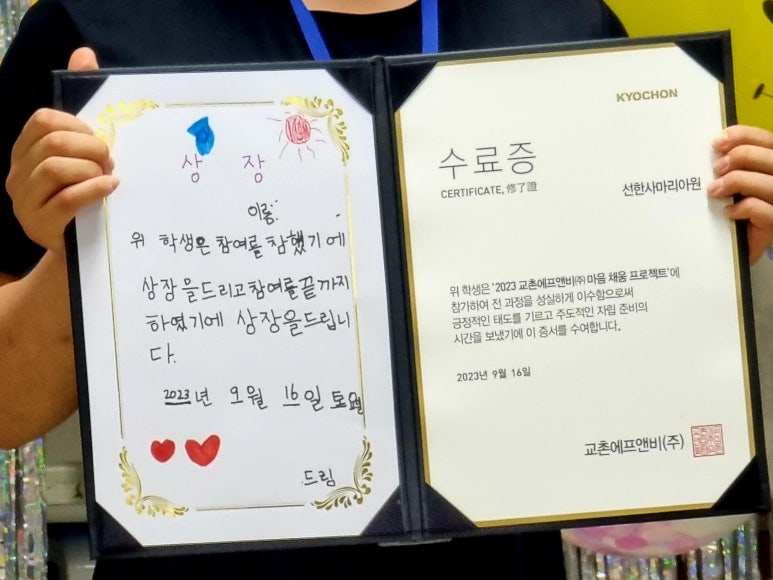 상 장
이름:
위 학생은 참여를 잠했기에
상장을드리고참여를끝까지
하였기에 상장을드립니
다.
2023년 9월 16일 토요일
드림
KYOCHON
수료증
CERTIFICATE, 修了證
선한사마리아원
위 학생은 '2023 교촌에프앤비㈜ 마음 채움 프로젝트'에
참가하여 전 과정을 성실하게 이수함으로써
긍정적인 태도를 기르고 주도적인 자립 준비의
시간을 보냈기에 이 증서를 수여합니다.
2023년 9월 16일
교촌에프앤비(주)